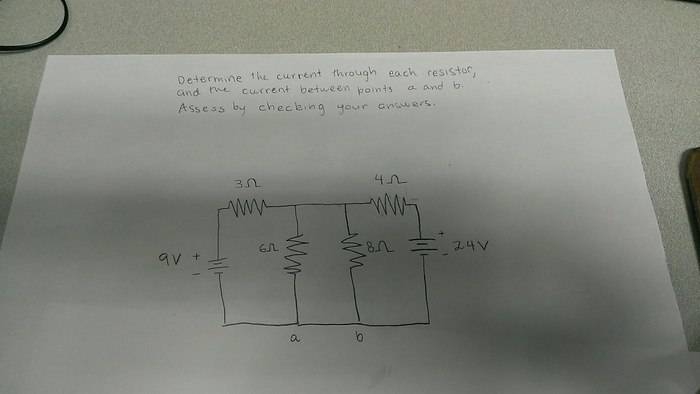 Determine the current through each resistor,
and the current between points a and b.
Assess by checking your answers.
3Ω 4Ω
9V + - 6Ω 8Ω + - 24V
a b